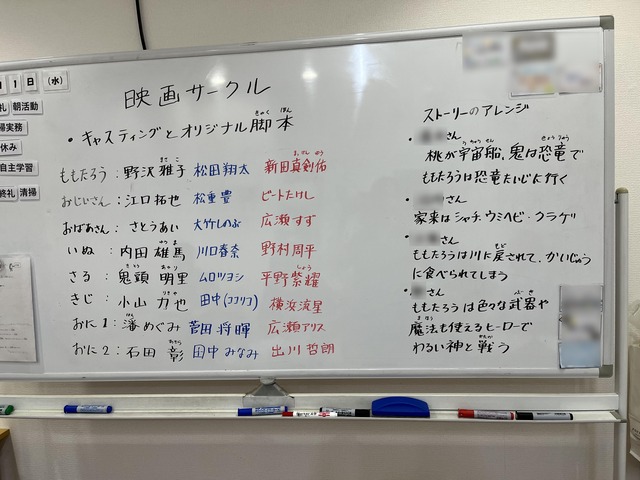 1日(水)
朝活動
実務
休み
自主学習
終礼 清掃
映画サークル
・キャスティングとオリジナル脚本
きゃく ほん
ももたろう：野沢 雅子 松田翔太 新田真剣佑
まさこ
あらた まっけんゆう
おじいさん：江口 拓也 松重 豊 ビートたけし
おばあさん：さとうあい 大竹しのぶ 広瀬すず
いぬ：内田 雄馬 川口春奈 野村周平
ゆうま
さる：鬼頭 明里 ムロツヨシ 平野紫耀
きとう あかり
しょう
きじ：小山 力也 田中(ココリコ) 横浜流星
りきや
おに1：潘めぐみ 菅田 将暉 広瀬アリス
はん
おに2：石田 彰 田中みなみ 出川 哲朗
あきら
ストーリーのアレンジ
さん
桃が宇宙船、鬼は恐竜で
うちゅうせん きょうりゅう
ももたろうは恐竜たいじに行く
・さん
家来はシャチ・ウミヘビ・クラゲ
・さん
ももたろうは川に戻されて、かいじゅう
もど
に食べられてしまう
・さん
ももたろうは色々な武器や
ぶき
魔法も使えるヒーローで
まほう
わるい神と戦う